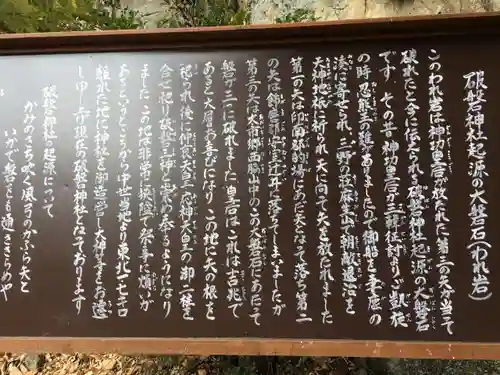 破磐神社起源の大磐石(われ岩)
このわれ岩は神功皇后が放たれた第三の矢が当って
破れたと今に伝えられる破磐神社起源の大磐石
です。その昔神功皇后が三韓征討より凱旋
の時忍熊王の謀があり ましたので御船を妻鹿の
湊に寄せられ三野の荘麻生山で朝敵退治を
天神地祇に祈られ天に向って矢を放たれました
第一の矢は印南郡的場にあだ矢となて落ち第二
の矢は飾磨郡安室辻井に落ちてしまいましたが
第三の矢は大市郷西脇山中のこの大磐石にあたって
磐が三つに破れました皇后はこれは吉兆で
あると大層お喜びになりこの地に矢の根を
祀られ後に仲哀天皇と応神天皇の御二柱を
合せ祀り破磐三神と崇め奉るようになり
ました この地は非常に嶮阻で祭事に煩いが
あるということから中世当地より東北二七キロ
離れた地に神社を御造営し大神等をお遷
し申し 現在の破磐神社となっております
破磐神社の起源について
かみのさち吹く風弓のかぶら矢と
いかで磐をも通さざらめや